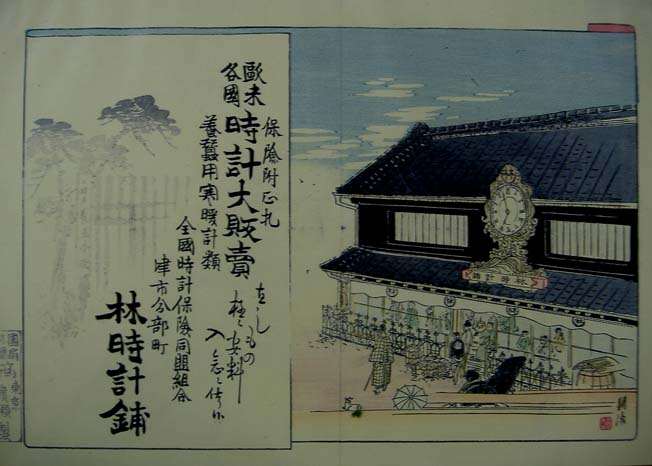 歐米
各國
保險附正札
時計大販賣
養蠶用寒暖計類
直しもの
入念ニ仕候
全國時計保險同盟組合
津市分部町
林時計鋪
林時計鋪